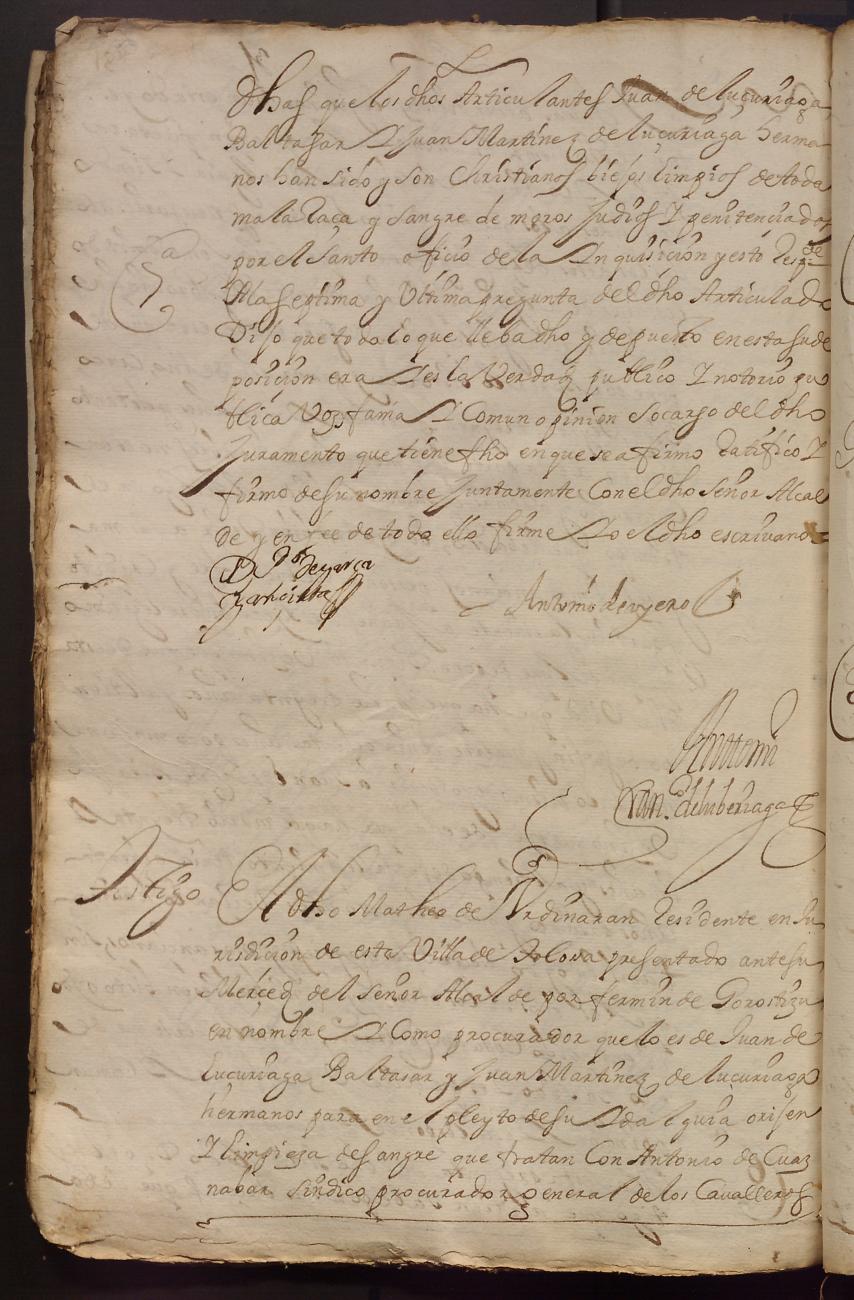 dhas que los dhos Articulantes Juan de lucuriaga
Baltasar Y Juan Martinez de lucuriaga herma
nos han sido y son Christianos biejos limpios de toda
mala Raça y sangre de moros Judios Y penitenciados
por el Santo oficio de la Inquisicion y esto Respde
7a
A la septima y Ultima pregunta del dho Articulado
Dijo que todo lo que lleba dho y depuesto en esta su de
posicion era Y es la Verdad publico Y notorio pu
blica Voz fama Y Comun opinion so cargo del dho
Juramento que tiene fho en que se afirmo Ratifico Y
firmo de su nombre Juntamente Con el dho señor Alcal
de y en fee de todo ello firme Yo el dho escrivano
Antonio de
Antemi
Fran.co de luberiaga
Ttigo
El dho Matheo de Urdinaran Residente en Ju
risdicion de esta Villa de Tolosa presentado ante su
Merced del señor Alcalde por fermin de Gorostizu
en nombre Y Como procurador que lo es de Juan de
lucuriaga Baltasar y Juan Martinez de lucuriaga
hermanos para en el pleyto de su Ydalguia orijen
Y limpieza de sangre que tratan Con Antonio de Cuaz
nabar sindico procurador general de los Cavalleros